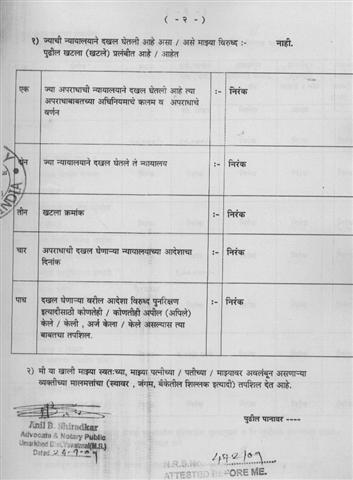 ( - २ - )
१) ज्याची न्यायालयाने दखल घेतली आहे असा / असे माझ्या विरुध्द :- नाही.
पुढील खटला (खटले) प्रलंबीत आहे / आहेत
एक ज्या अपराधाची न्यायालयाने दखल घेतली आहे त्या :- निरंक
अपराधाबाबतच्या अधिनियमाचे कलम व अपराधाचे
वर्णन
दोन ज्या न्यायालयाने दखल घेतले ते न्यायालय :- निरंक
तीन खटला क्रमांक :- निरंक
चार अपराधाची दखल घेणाऱ्या न्यायालयाच्या आदेशाचा :- निरंक
दिनांक
पाच दखल घेणाऱ्या वरील आदेशा विरुध्द पुनरिक्षण :- निरंक
इत्यादीसाठी कोणतेही / कोणतीही अपील (अपिले)
केले / केली , अर्ज केला / केले असल्यास त्या
बाबतचा तपशिल.
२) मी या खाली माझ्या स्वतःच्या, माझ्या पत्नीच्या / पतीच्या / माझ्यावर अवलंबून असणाऱ्या
व्यक्तीच्या मालमत्तांचा (स्थावर , जंगम, बँकेतील शिल्लक इत्यादी) तपशिल देत आहे.
पुढील पानावर ----
Anil B. Shiradkar
Advocate & Notary Public
Umarkhed Dist. Yavatmal (M.S.)
Dated
N.R.S.No.
ATTESTED BEFORE ME.
INDIA